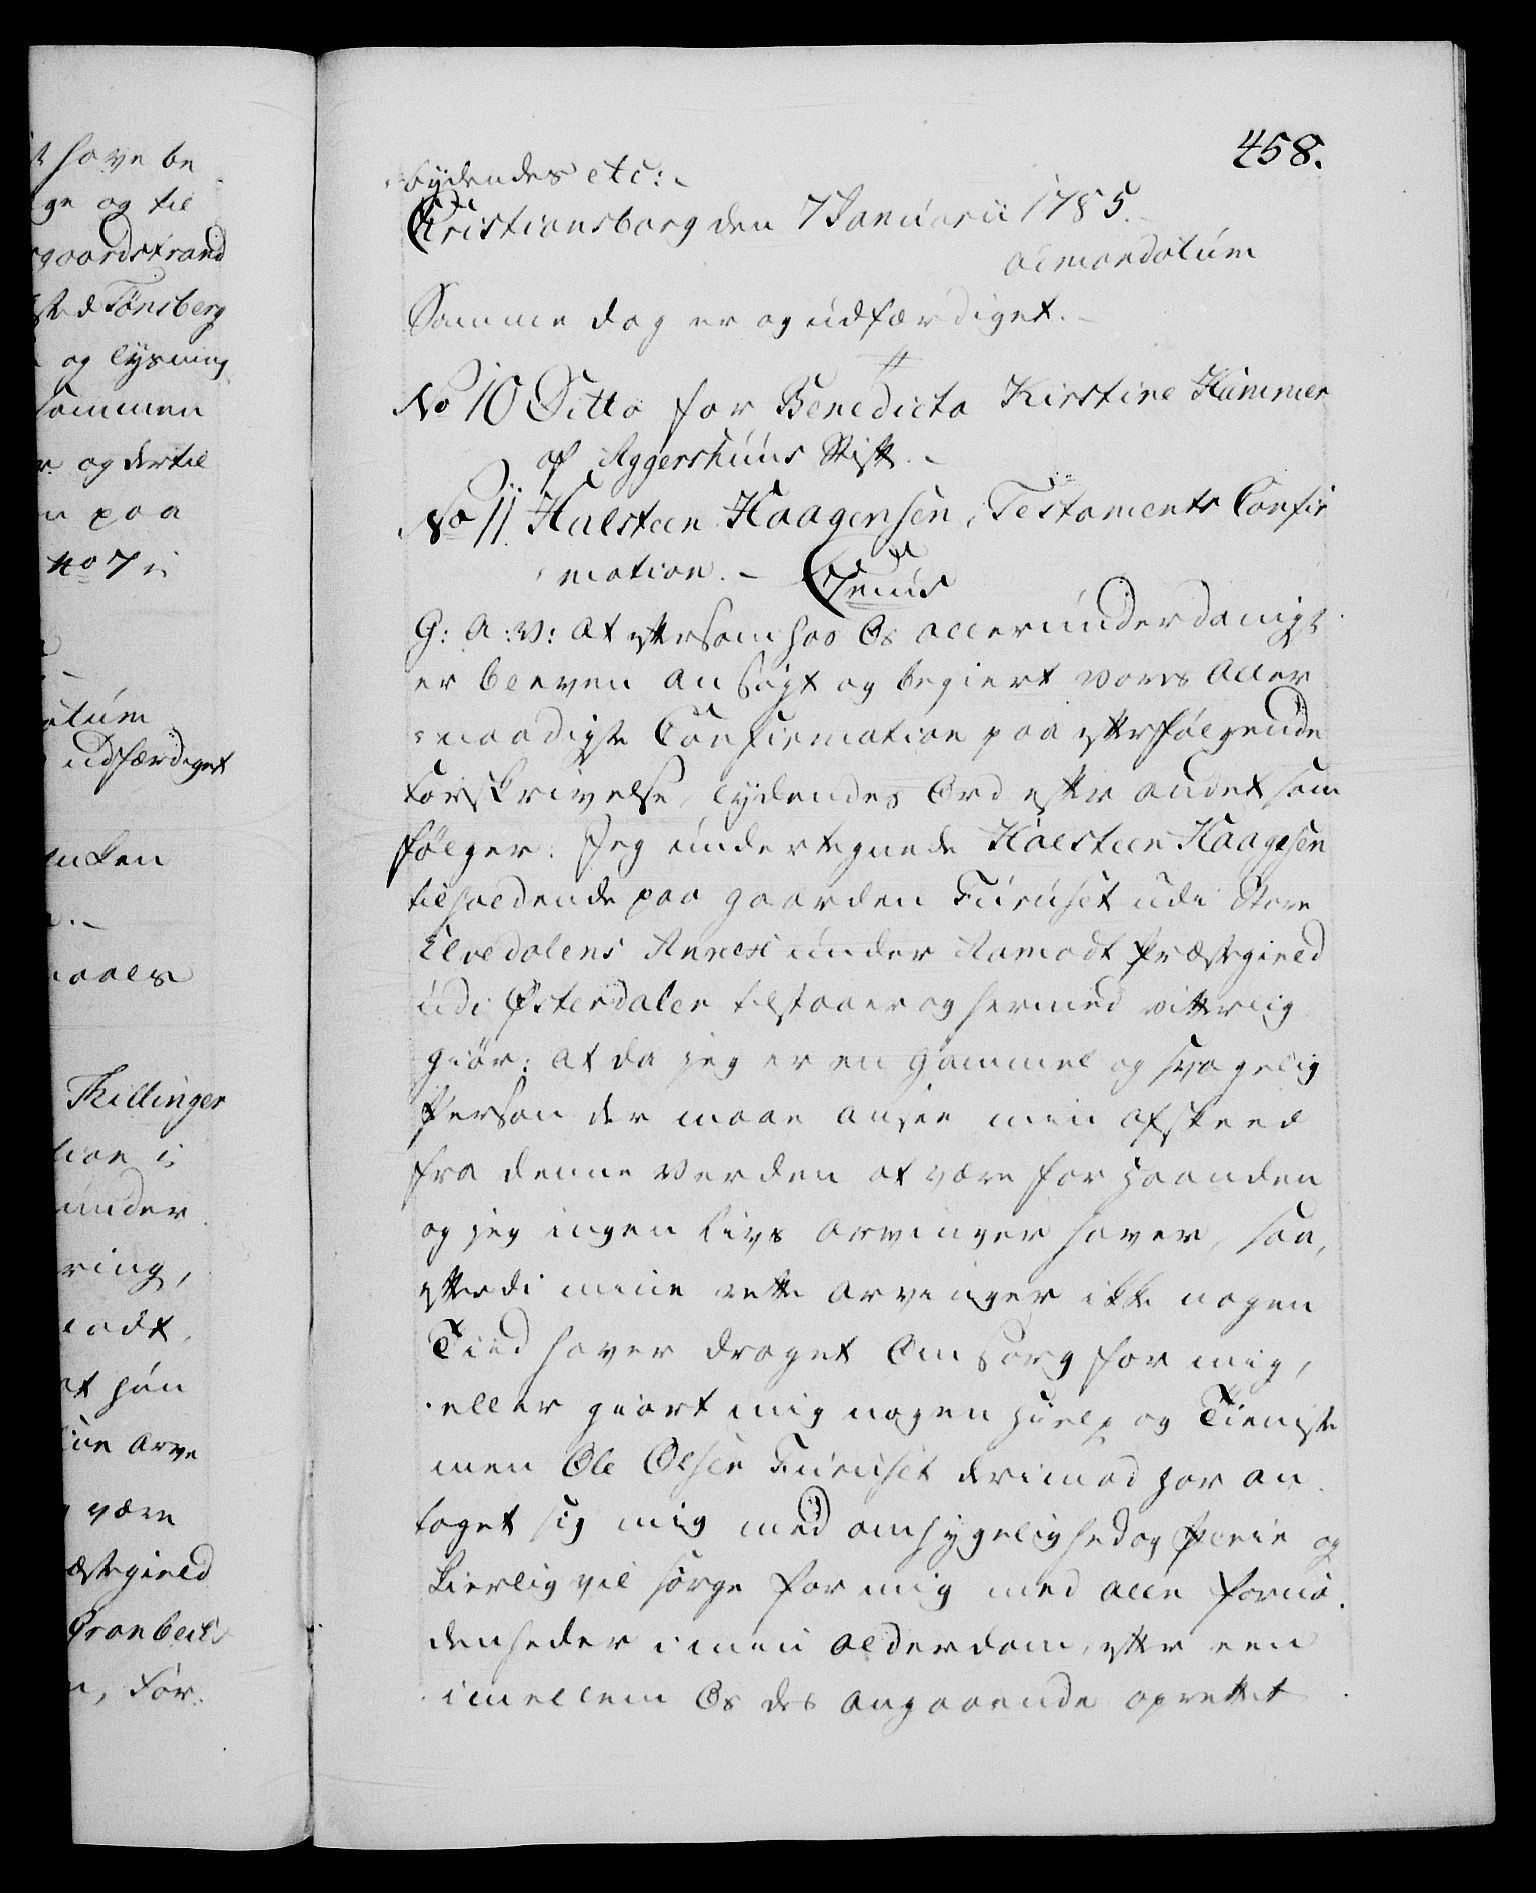 t have be
ge og til
gaardstrand
sted Tønsberg
og lysning
sammen
og dertil
paa
No 7 i
atum
udfærdiget
enken
Skillinger
tion i
under
ring,
at hun
sine Arve
være
ræstegield
Grønbechs
, For
458.
bydendes etc:
Christiansborg den 7 Januarii 1785.
ad mandatum
Samme dag er og udfærdiget.
No 10 Ditto for Benedicta Kirstine Hammer
af Aggershuus Stift.
No 11 Halsteen Haagensen, Testaments Confir
mation. - Genus
G: A: V: at eftersom hos Os allerunderdanigst
er bleven ansøgt og begiert vores Aller
naadigste Confirmation paa efterfølgende
Forskrivelse, lydendes Ord efter andet som
følger: Jeg undertegnede Halsteen Haagesen
tilholdende paa gaarden Furuset udi Store
Elvedalens Annex under Aamodt Præstegield
udi Østerdalen tilstaaer og hermed vitterlig
giør: at da jeg er en gammel og svagelig
Person der maae ansee min afskeed
fra denne Verden at være for haanden
og jeg ingen Livs Arvinger haver, saa,
efterdi mine rette Arvinger ikke nogen
Tiid haver draget Omsorg for mig,
eller giort mig nogen hielp og Tieniste
men Ole Olsen Furuset derimod har an
taget sig mig med omhyggelighed og Pleie og
kierlig vil sørge for mig med alle fornø
denheder i min alderdom, efter een
imellem Os des angaaende oprettet